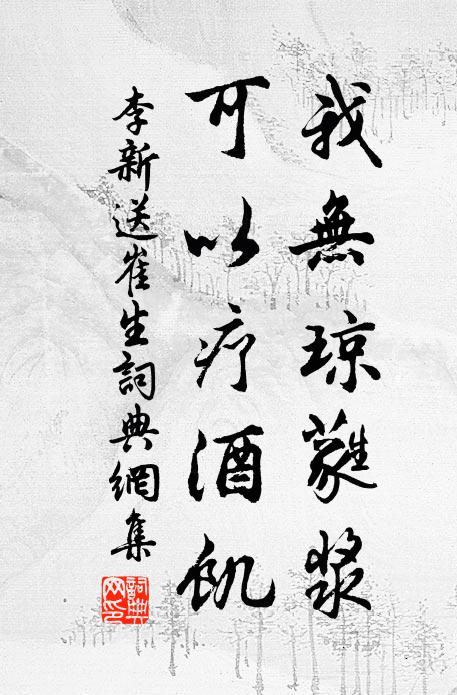 我無琼蕤漿
可以疗酒飢
李新送崔生詞典網集
詞典网印